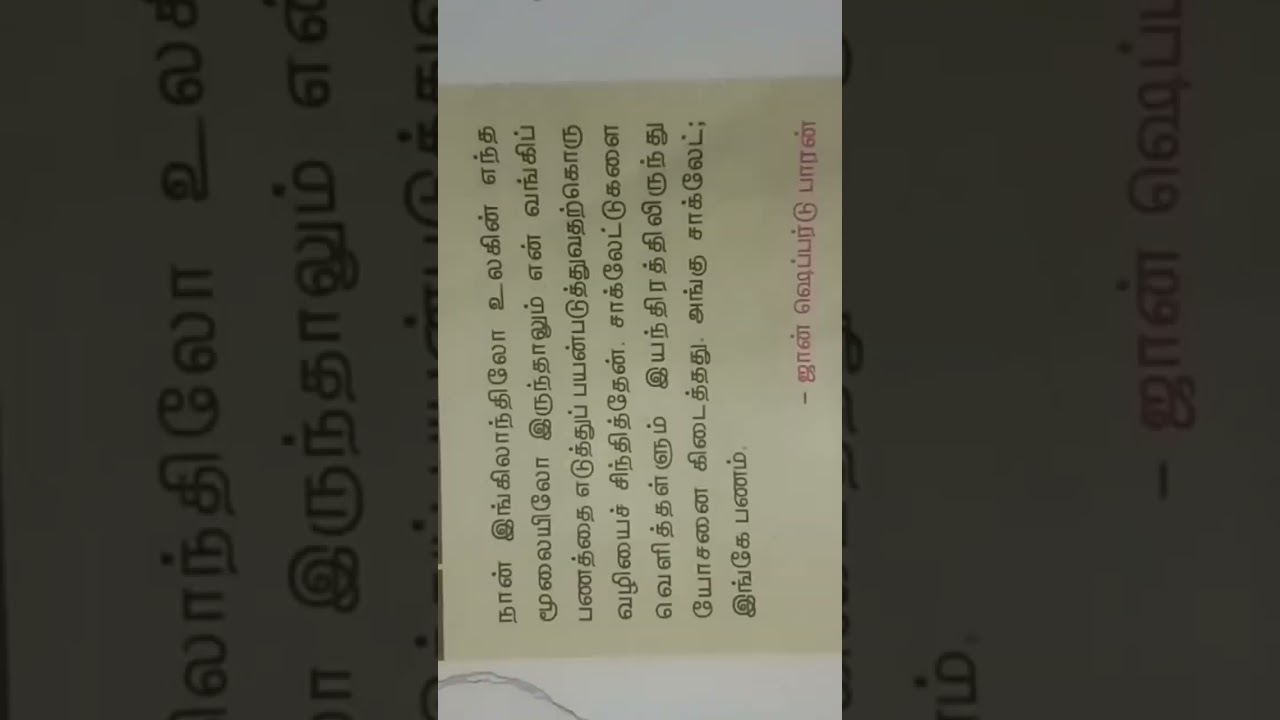 நான் இங்கிலாந்திலோ உலகின் எந்த
மூலையிலோ இருந்தாலும் என் வங்கிப்
பணத்தை எடுத்துப் பயன்படுத்துவதற்கொரு
வழியைச் சிந்தித்தேன். சாக்லேட்டுகளை
வெளித்தள்ளும் இயந்திரத்திலிருந்து
யோசனை கிடைத்தது. அங்கு சாக்லேட்;
இங்கே பணம்.
– ஜான் ஷெப்பர்டு பாரன்